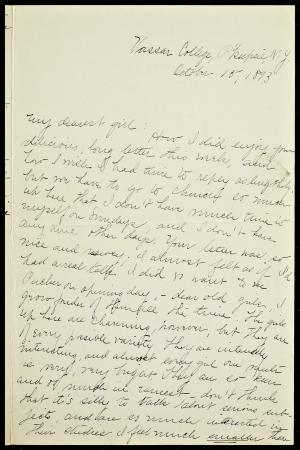 Vassar College, P'keepsie, N.Y.
October 15, 1893
My dearest girl:
How I did enjoy your
delicious, long letter this week, and
how I wish I had time to reply as lengthily,
but we have to go to church so much
up here that I don't have much time to
myself on Sundays, and I don't have
any time other days. Your letter was so
nice and newsy, I almost felt as if I'd
had a real talk. I did so want to see
on opening day, - dear old gals, I
grow fonder of them all the time. The girls
up here are charming, however, but they are
of every possible variety. They are intensely
interesting, and almost every girl one meets
is very, very bright. They are so keen
and so much in earnest - don't think
that it's silly to talk about serious sub-
jects, and are so much interested in
their studies. I feel much smaller than